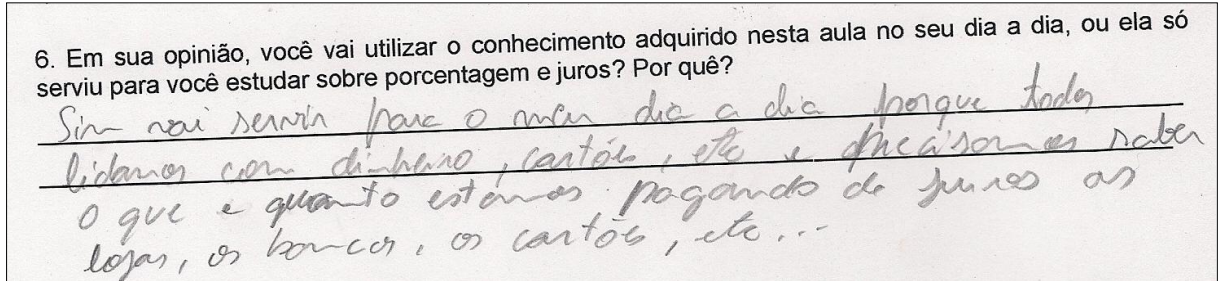 6. Em sua opinião, você vai utilizar o conhecimento adquirido nesta aula no seu dia a dia, ou ela só
serviu para você estudar sobre porcentagem e juros? Por quê?
Sim vai servir para o meu dia a dia porque todos
lidamos com dinheiro, cartões, etc e precisamos saber
o que e quanto estamos pagando de juros as
lojas, os bancos, os cartões, etc...